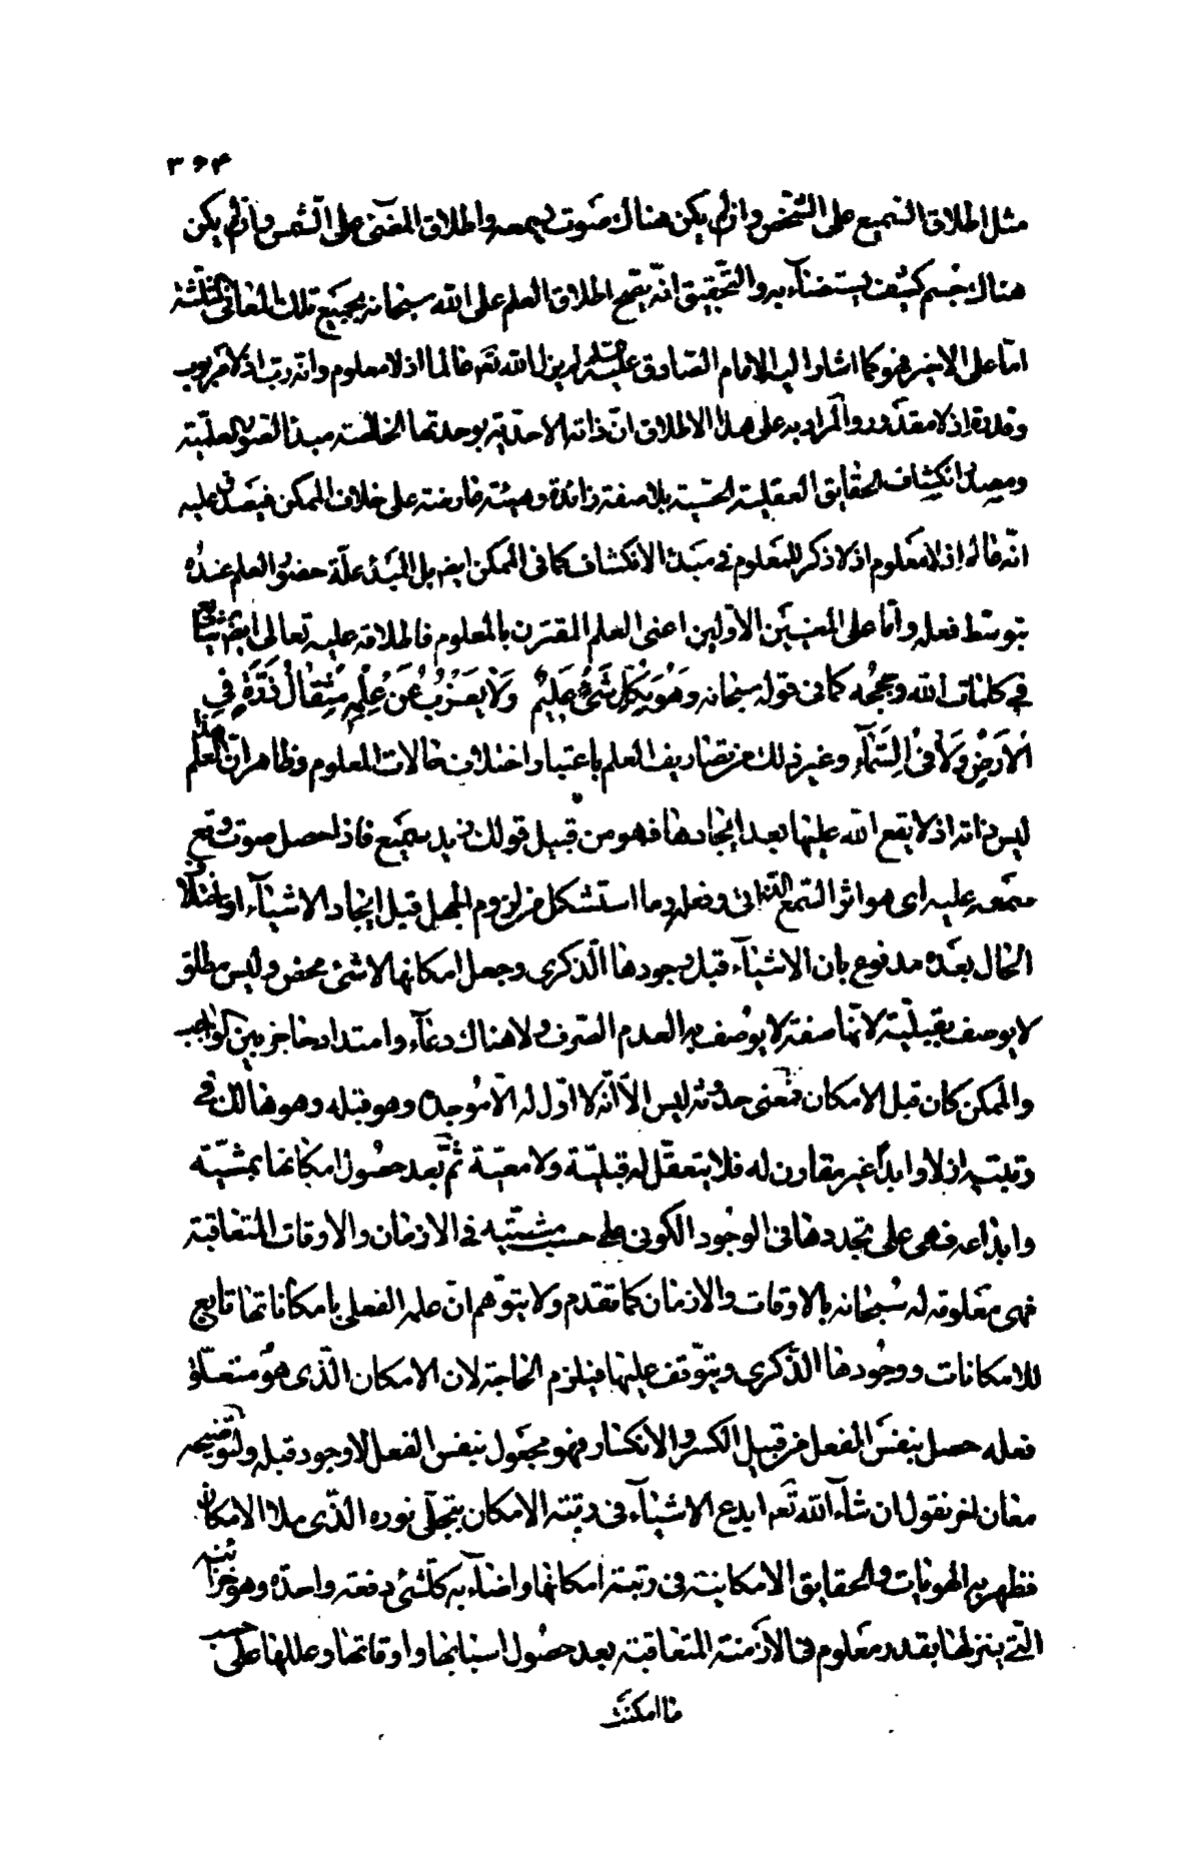 ۳۶۴
مثل اطلاق السميع على الشخص وان لم يكن هناك صوت يسمعه واطلاق المضئ على الشمس وان لم يكن
هناك جسم كثيف يستضئ به والتحقيق انه يصح اطلاق العلم على الله سبحانه بجميع تلك المعانى الثلثة
امّا على الاخير فهو كما اشار اليه الامام الصادق عليه السلم لم يزل الله تعه عالما اذ لا معلوم وانه رب اذ لا مربوب
وقدرة اذ لا مقدور والمراد به على هذا الاطلاق انّ ذاته الاحديّة بوحدتها الخالصة مبدأ الصور العلميّة
ومصدر انكشاف الحقايق العقلية الحسّية بلا صفة زائدة وهيئة عارضة على خلاف الممكن فيصدق عليه
انّه عالم اذ لا معلوم اذ لا ذكر للمعلوم فى مبدء الانكشاف كما فى الممكن ايضه بل المبدء علّة حضور العلم عنده
بتوسط فعله وامّا على المعنيين الاوّلين اعنى العلم المقترن بالمعلوم فاطلاقه عليه تعالى ايضه شايع
فى كلمات الله وحججه كما فى قوله سبحانه وَهُوَ بِكُلِّ شَئٍ عَلِيمٌ وَلا يَعْزُبُ عَنْ عِلْمِهِ مِثْقالُ ذَرَّةٍ فِى
الْاَرْضِ وَلا فِى السَّمٰآءِ وغير ذلك من تصاريف العلم باعتبار اختلاف حالات المعلوم وظاهر انّ هذا العلم
ليس ذاته اذ لا يقع الله عليها بعد ايجادها فهو من قبيل قولك زيد سميع فاذا حصل صوت وقع
سمعه عليه اى هو اثر السمع الذاتى وفعله وما استشكل من لزوم الجهل قبل ايجاد الاشيآء او اختلاف
الحال بعده مدفوع بان الاشيآء قبل وجودها الذكرى وجعل امكانها لا شئ محض وليس مطلق
لا يوصف بقبيليّة لانّها صفة لا يوصف به العدم الصّرف ولا هناك دعآء وامتداد حاجز بين الواجب
والممكن كان قبل الامكان فمعنى حدوثه ليس الّا انّه لا اوّل له الّا موجده وهو قبله وهو هالك فى
رتبته ازلا وابداً غير مقاون له فلا يتعقّل له قبليّة ولا معيّة ثُمّ بعد حصول امكانها بمشيّته
وابداعه فهى على تجددها فى الوجود الكونى على حسب مشيّته فى الازمان والاوقات المتعاقبة
فهى معلومة له سُبحانه بالاوقات والازمان كما تقدم ولا يتوّهم انّ علمه الفعلى بامكاناتها تابع
للامكانات ووجُودها الذّكرى ويتوّقف عليها فيلزم الحاجة لان الامكان الّذى هو متعلّق
فعله حصل بنفس الفعل من قبيل الكسر والانكسار فهو مجعول بنفس الفعل لا وجود قبله ولتوضيحه
معان اخر نقول ان شآء الله تعه ابدع الاشيآء فى رتبة الامكان بتجلّى نوره الّذى ملأ الامكان
فظهر به الهويّات والحقايق الامكانية فى رتبة امكانها واضآء به كلّشئ دفعة واحدة وهو خزائنه
الّتى ينزلها بقدر معلوم فى الازمنة المتعاقبة بعد حصُول اسبابها واوقاتها وعللها على حسب
ما امكنت